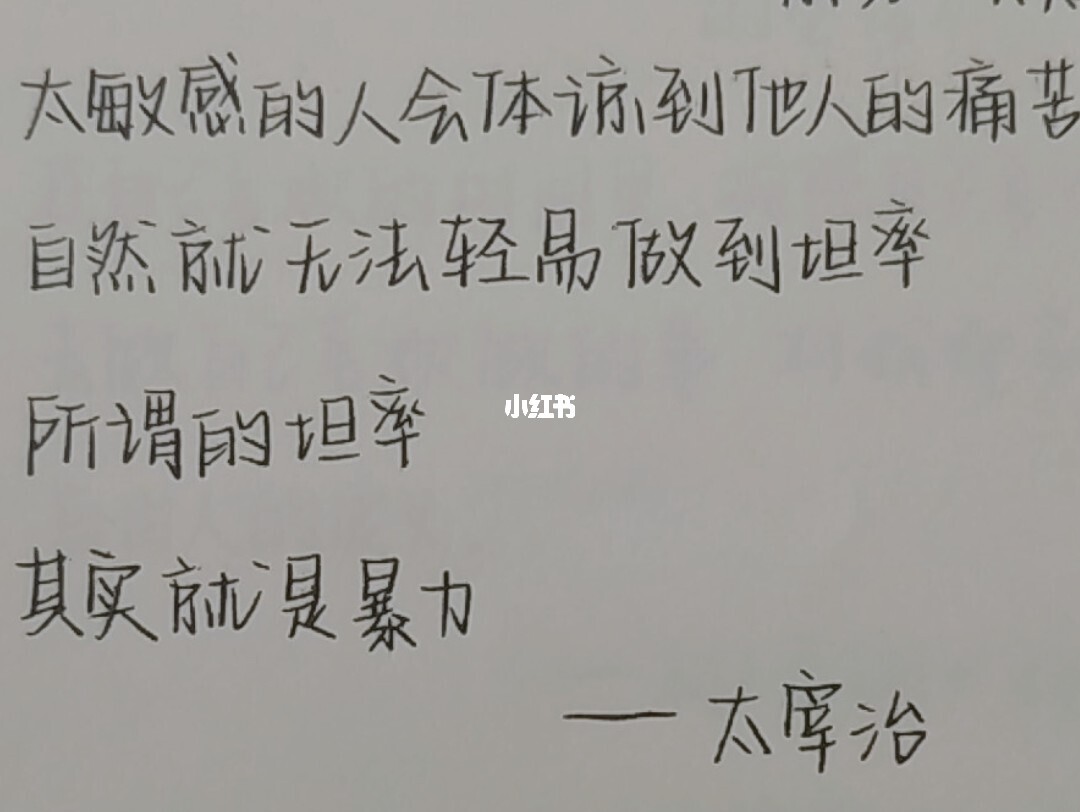 太敏感的人会体谅到他人的痛苦
自然就无法轻易做到坦率
所谓的坦率
小红书
其实就是暴力
——太宰治